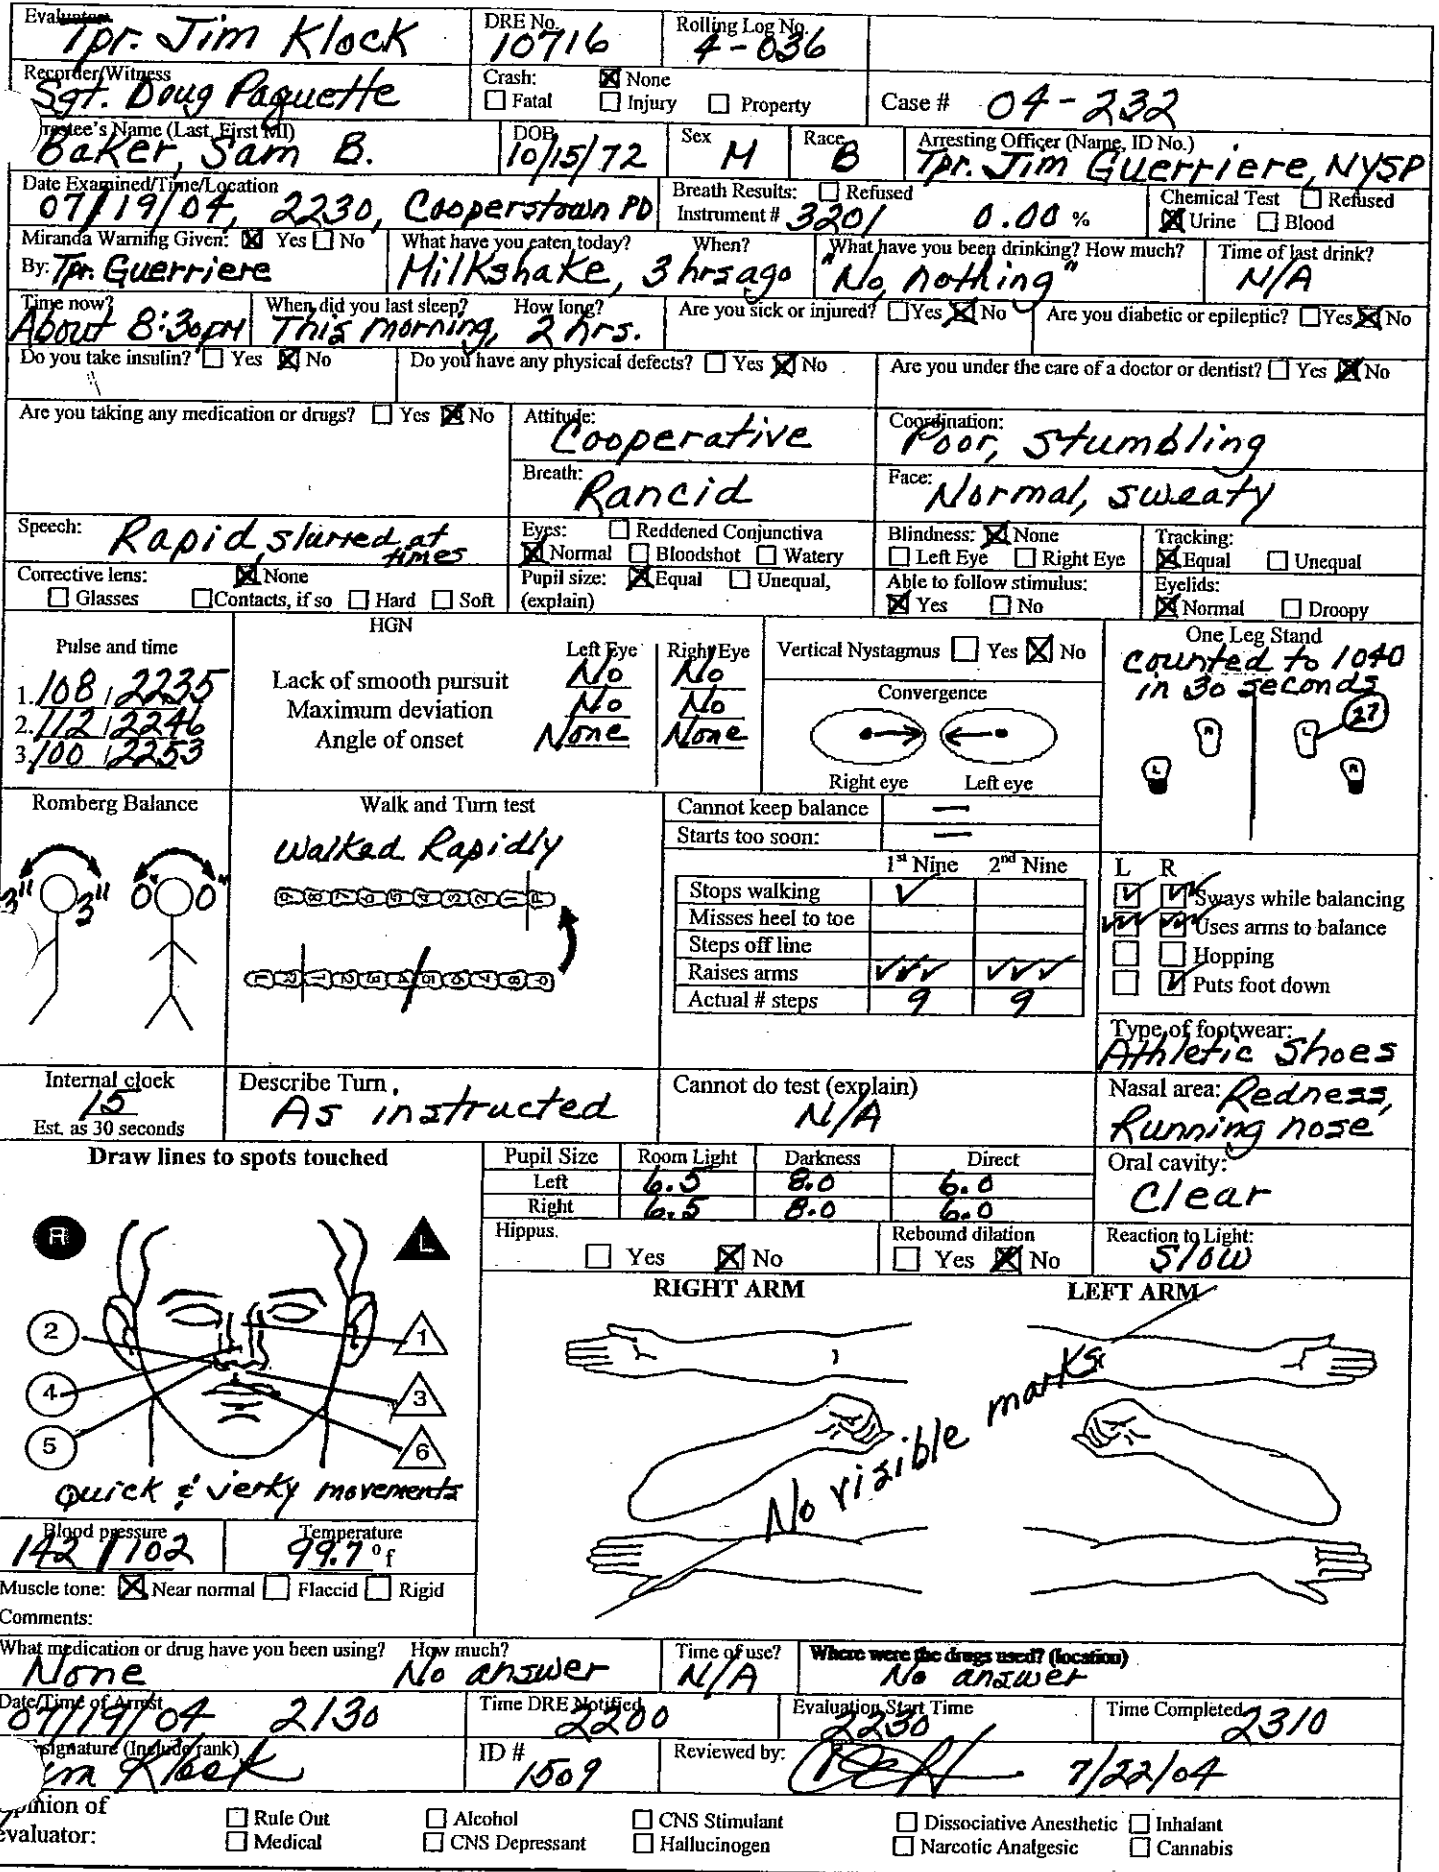 Evaluator Tpr. Jim Klock
DRE No. 10716
Rolling Log No. 4-036
Recorder/Witness Sgt. Doug Paquette
Crash: ☒ None
☐ Fatal ☐ Injury ☐ Property
Case # 04-232
Arrestee's Name (Last, First MI) Baker, Sam B.
DOB 10/15/72
Sex M
Race B
Arresting Officer (Name, ID No.) Tpr. Jim Guerriere, NYSP
Date Examined/Time/Location 07/19/04, 2230, Cooperstown PD
Breath Results: ☐ Refused
Instrument # 3201 0.00 %
Chemical Test ☐ Refused
☒ Urine ☐ Blood
Miranda Warning Given: ☒ Yes ☐ No
By: Tpr. Guerriere
What have you eaten today? When?
Milkshake, 3 hrs ago
What have you been drinking? How much?
"No, nothing"
Time of last drink?
N/A
Time now?
About 8:30pm
When did you last sleep? How long?
This morning, 2 hrs.
Are you sick or injured? ☐ Yes ☒ No
Are you diabetic or epileptic? ☐ Yes ☒ No
Do you take insulin? ☐ Yes ☒ No
Do you have any physical defects? ☐ Yes ☒ No
Are you under the care of a doctor or dentist? ☐ Yes ☒ No
Are you taking any medication or drugs? ☐ Yes ☒ No
Attitude: Cooperative
Coordination: Poor, stumbling
Breath: Rancid
Face: Normal, sweaty
Speech: Rapid, slurred at times
Eyes: ☐ Reddened Conjunctiva
☒ Normal ☐ Bloodshot ☐ Watery
Blindness: ☒ None
☐ Left Eye ☐ Right Eye
Tracking:
☒ Equal ☐ Unequal
Corrective lens: ☒ None
☐ Glasses ☐ Contacts, if so ☐ Hard ☐ Soft
Pupil size: ☒ Equal ☐ Unequal,
(explain)
Able to follow stimulus:
☒ Yes ☐ No
Eyelids:
☒ Normal ☐ Droopy
Pulse and time
1. 108 / 2235
2. 112 / 2246
3. 100 / 2253
HGN
Left Eye Right Eye
Lack of smooth pursuit No No
Maximum deviation No No
Angle of onset None None
Vertical Nystagmus ☐ Yes ☒ No
Convergence
Right eye Left eye
One Leg Stand
counted to 1040
in 30 seconds
27
R L
L R
Romberg Balance
3" 3" 0" 0"
Walk and Turn test
Walked Rapidly
Cannot keep balance —
Starts too soon: —
1st Nine 2nd Nine
Stops walking ✓
Misses heel to toe
Steps off line
Raises arms ✓✓✓ ✓✓✓
Actual # steps 9 9
L R
☑ ☑ Sways while balancing
☑ ☑ Uses arms to balance
☐ ☐ Hopping
☐ ☑ Puts foot down
Type of footwear:
Athletic Shoes
Internal clock
15
Est. as 30 seconds
Describe Turn
As instructed
Cannot do test (explain)
N/A
Nasal area: Redness,
Running nose
Draw lines to spots touched
R L
2 1
4 3
5 6
Quick & jerky movements
Pupil Size Room Light Darkness Direct
Left 6.5 8.0 6.0
Right 6.5 8.0 6.0
Oral cavity:
Clear
Hippus.
☐ Yes ☒ No
Rebound dilation
☐ Yes ☒ No
Reaction to Light:
Slow
RIGHT ARM LEFT ARM
No visible marks
Blood pressure
142 / 102
Temperature
99.7 °f
Muscle tone: ☒ Near normal ☐ Flaccid ☐ Rigid
Comments:
What medication or drug have you been using? How much?
None No answer
Time of use?
N/A
Where were the drugs used? (location)
No answer
Date/Time of Arrest
07/19/04 2130
Time DRE Notified
2200
Evaluation Start Time
2230
Time Completed
2310
signature (Include rank)
Jim Klock
ID #
1509
Reviewed by:
7/22/04
Opinion of
evaluator:
☐ Rule Out ☐ Alcohol ☐ CNS Stimulant ☐ Dissociative Anesthetic ☐ Inhalant
☐ Medical ☐ CNS Depressant ☐ Hallucinogen ☐ Narcotic Analgesic ☐ Cannabis